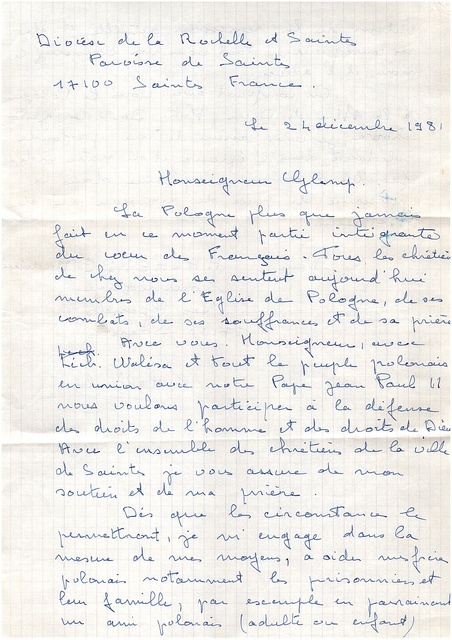 Diocèse de la Rochelle et Saintes
Paroisse de Saintes
17100 Saintes France.
Le 24 décembre 1981
Monseigneur Glemp.
La Pologne plus que jamais
fait en ce moment partie intégrante
du coeur des Français. Tous les chrétiens
de chez nous se sentent aujourd'hui
membres de l'Eglise de Pologne, de ses
combats, de ses souffrances et de sa prière
Avec vous. Monseigneur, avec
Lech. Walésa et tout le peuple polonais
en union avec notre Pape Jean Paul II
nous voulons participer à la défense
des droits de l'homme et des droits de Dieu
Avec l'ensemble des chrétiens de la ville
de Saintes je vous assure de mon
soutien et de ma prière.
Dès que les circonstances le
permettront, je m'engage dans la
mesure de mes moyens, a aider un frère
polonais notamment les prisonniers et
leur famille, par exemple en parrainant
un ami polonais (adulte ou enfant)